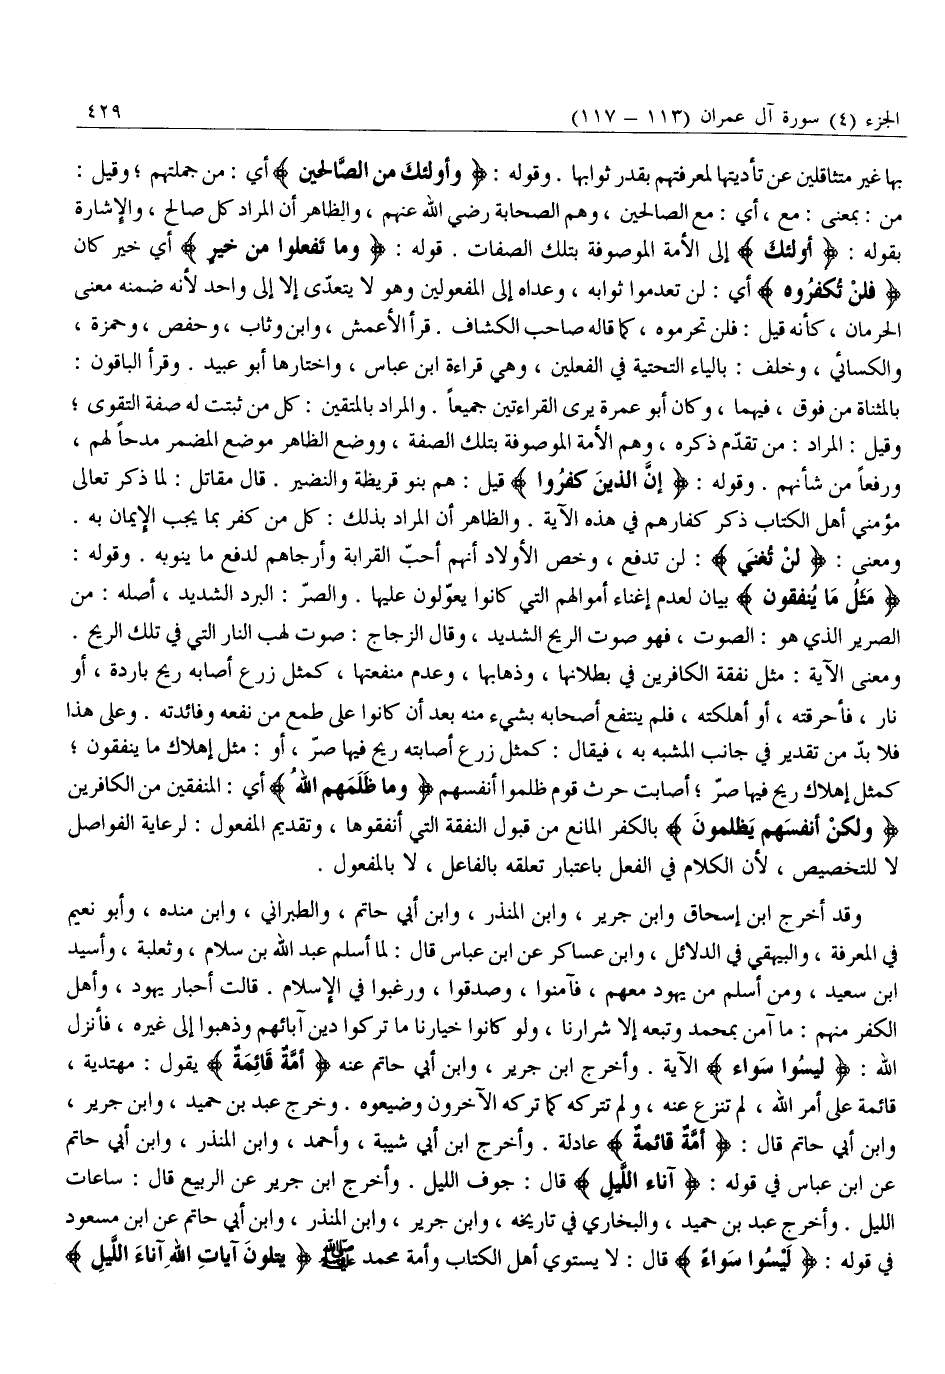 الجزء (٤) سورة آل عمران (١١٣ – ١١٧) ٤٢٩
بها غير متثاقلين عن تأديتها لمعرفتهم بقدر ثوابها . وقوله : ﴿ وأولئكَ من الصَّالحين ﴾ أي : من جملتهم ؛ وقيل :
من : بمعنى : مع ، أي : مع الصالحين ، وهم الصحابة رضي الله عنهم ، والظاهر أن المراد كل صالح ، والإشارة
بقوله : ﴿ أولئكَ ﴾ إلى الأمة الموصوفة بتلك الصفات . قوله : ﴿ وما تَفعلوا من خيرٍ ﴾ أي خير كان
﴿ فلنْ تُكفَرُوه ﴾ أي : لن تعدموا ثوابه ، وعداه إلى المفعولين وهو لا يتعدّى إلا إلى واحد لأنه ضمنه معنى
الحرمان ، كأنه قيل : فلن تحرموه ، كما قاله صاحب الكشاف . قرأ الأعمش ، وابن وثاب ، وحفص ، وحمزة ،
والكسائي ، وخلف : بالياء التحتية في الفعلين ، وهي قراءة ابن عباس ، واختارها أبو عبيد . وقرأ الباقون :
بالمثناة من فوق ، فيهما ، وكان أبو عمرة يرى القراءتين جميعاً . والمراد بالمتقين : كل من ثبتت له صفة التقوى ؛
وقيل : المراد : من تقدّم ذكره ، وهم الأمة الموصوفة بتلك الصفة ، ووضع الظاهر موضع المضمر مدحاً لهم ،
ورفعاً من شأنهم . وقوله : ﴿ إنَّ الذينَ كفرُوا ﴾ قيل : هم بنو قريظة والنضير . قال مقاتل : لما ذكر تعالى
مؤمني أهل الكتاب ذكر كفارهم في هذه الآية . والظاهر أن المراد بذلك : كل من كفر بما يجب الإيمان به .
ومعنى : ﴿ لنْ تُغنيَ ﴾ : لن تدفع ، وخص الأولاد أنهم أحبّ القرابة وأرجاهم لدفع ما ينوبه . وقوله :
﴿ مَثَلُ مَا يُنفقون ﴾ بيان لعدم إغناء أموالهم التي كانوا يعوّلون عليها . والصرّ : البرد الشديد ، أصله : من
الصرير الذي هو : الصوت ، فهو صوت الريح الشديد ، وقال الزجاج : صوت لهب النار التي في تلك الريح .
ومعنى الآية : مثل نفقة الكافرين في بطلانها ، وذهابها ، وعدم منفعتها ، كمثل زرع أصابه ريح باردة ، أو
نار ، فأحرقته ، أو أهلكته ، فلم ينتفع أصحابه بشيء منه بعد أن كانوا على طمع من نفعه وفائدته . وعلى هذا
فلا بدّ من تقدير في جانب المشبه به ، فيقال : كمثل زرع أصابته ريح فيها صرّ ، أو : مثل إهلاك ما ينفقون ؛
كمثل إهلاك ريح فيها صرّ ؛ أصابت حرث قوم ظلموا أنفسهم ﴿ وما ظَلَمَهم اللهُ ﴾ أي : المنفقين من الكافرين
﴿ ولكنْ أنفسَهم يَظلمونَ ﴾ بالكفر المانع من قبول النفقة التي أنفقوها ، وتقديم المفعول : لرعاية الفواصل
لا للتخصيص ، لأن الكلام في الفعل باعتبار تعلقه بالفاعل ، لا بالمفعول .
وقد أخرج ابن إسحاق وابن جرير ، وابن المنذر ، وابن أبي حاتم ، والطبراني ، وابن منده ، وأبو نعيم
في المعرفة ، والبيهقي في الدلائل ، وابن عساكر عن ابن عباس قال : لما أسلم عبد الله بن سلام ، وثعلبة ، وأسيد
ابن سعيد ، ومن أسلم من يهود معهم ، فآمنوا ، وصدقوا ، ورغبوا في الإسلام . قالت أحبار يهود ، وأهل
الكفر منهم : ما آمن بمحمد وتبعه إلا شرارنا ، ولو كانوا خيارنا ما تركوا دين آبائهم وذهبوا إلى غيره ، فأنزل
الله : ﴿ ليسُوا سَواء ﴾ الآية . وأخرج ابن جرير ، وابن أبي حاتم عنه ﴿ أمَّةٌ قَائِمَةٌ ﴾ يقول : مهتدية ،
قائمة على أمر الله ، لم تنزع عنه ، ولم تتركه كما تركه الآخرون وضيعوه . وخرج عبد بن حميد ، وابن جرير ،
وابن أبي حاتم قال : ﴿ أمَّةٌ قائمةٌ ﴾ عادلة . وأخرج ابن أبي شيبة ، وأحمد ، وابن المنذر ، وابن أبي حاتم
عن ابن عباس في قوله : ﴿ آناء اللَّيلِ ﴾ قال : جوف الليل . وأخرج ابن جرير عن الربيع قال : ساعات
الليل . وأخرج عبد بن حميد ، والبخاري في تاريخه ، وابن جرير ، وابن المنذر ، وابن أبي حاتم عن ابن مسعود
في قوله : ﴿ لَيْسُوا سَواءً ﴾ قال : لا يستوي أهل الكتاب وأمة محمد ﷺ ﴿ يتلونَ آياتِ اللهِ آناءَ اللَّيلِ ﴾